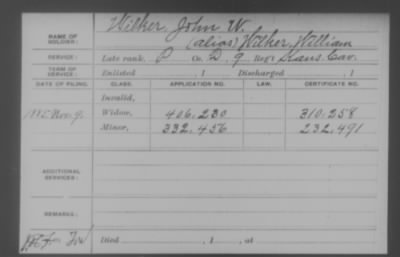 NAME OF SOLDIER: Wilker, John W.
(alias) Wilker, William
SERVICE: Late rank, P Co. D, 9 Reg't Kans. Cav.
TERM OF SERVICE: Enlisted , 1 Discharged , 1
DATE OF FILING. CLASS. APPLICATION NO. LAW. CERTIFICATE NO.
Invalid,
Nov. 9. Widow, 406.230 310.258
Minor, 332.456 232.491
ADDITIONAL SERVICES:
REMARKS:
Died , 1 , at